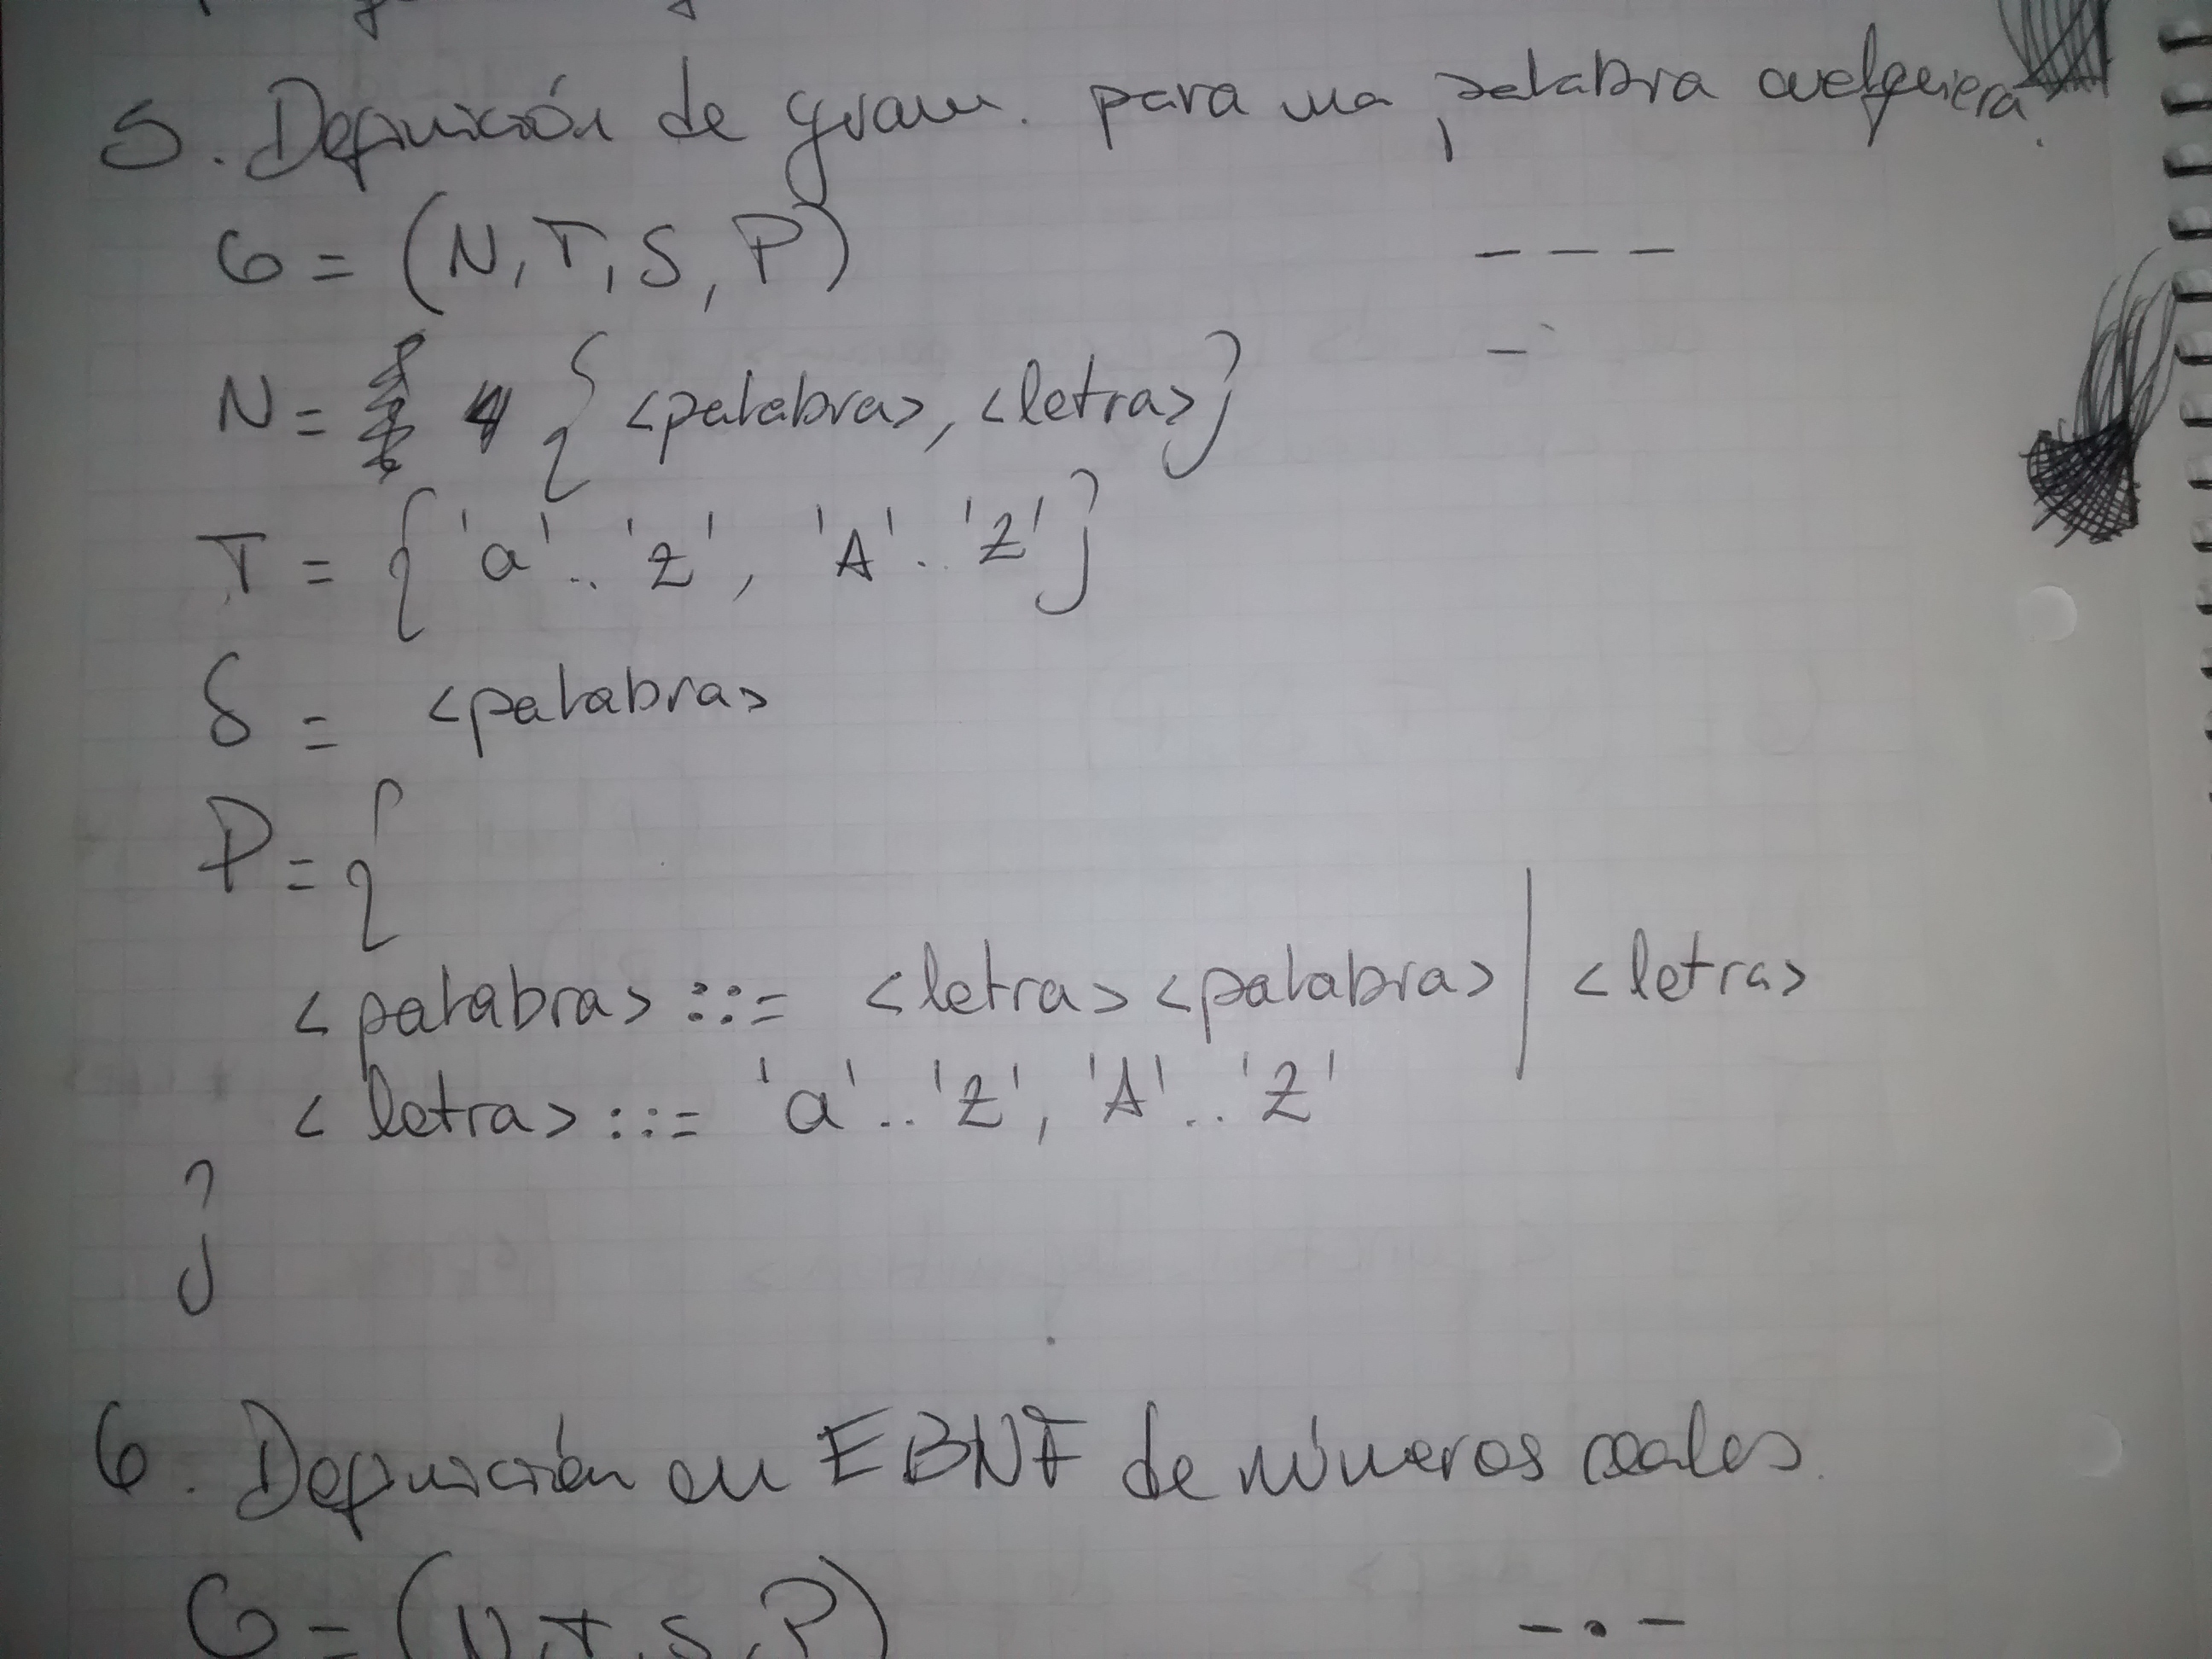 5. Definición de gram. para una palabra cualquiera.
G = (N, T, S, P)
- - -
-
N = { <palabra>, <letra> }
T = { 'a'..'z', 'A'..'Z' }
S = <palabra>
P = {
<palabra> ::= <letra> <palabra> | <letra>
<letra> ::= 'a'..'z', 'A'..'Z'
}
6. Definición en EBNF de números reales.
G = (N, T, S, P)
- . -